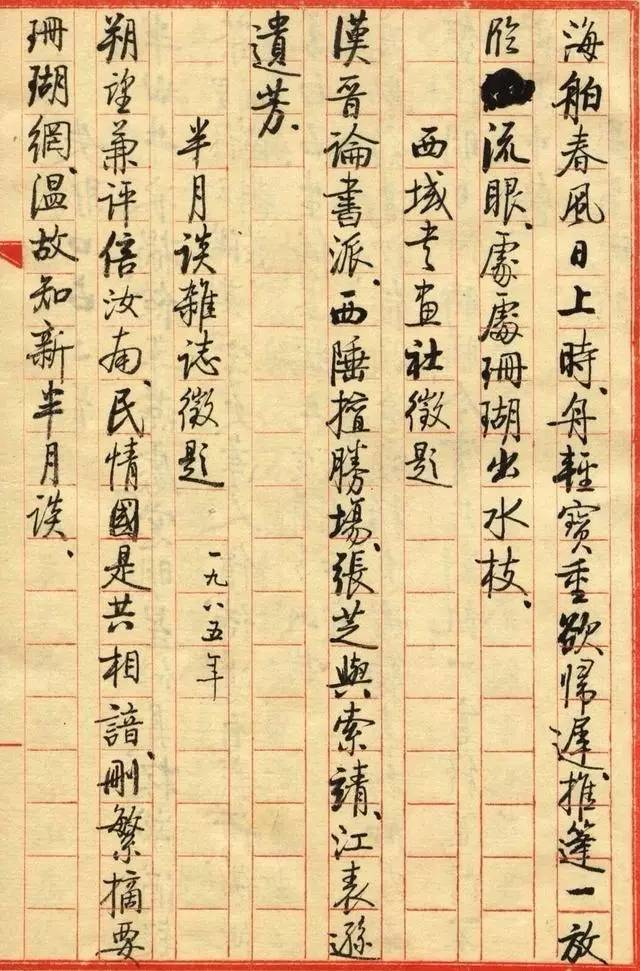 海舶春風日上時、舟輕寶重欲歸遲、推篷一放
流眼、處處珊瑚出水枝、
西域書画社徵題
漢晉論書派、西陲擅勝場、張芝與索靖、江表遜
遺芳、
半月談雜誌徵題 一九八五年
朔望兼評倍汝南、民情國是共相諳、刪繁摘要
珊瑚網、溫故知新半月談、